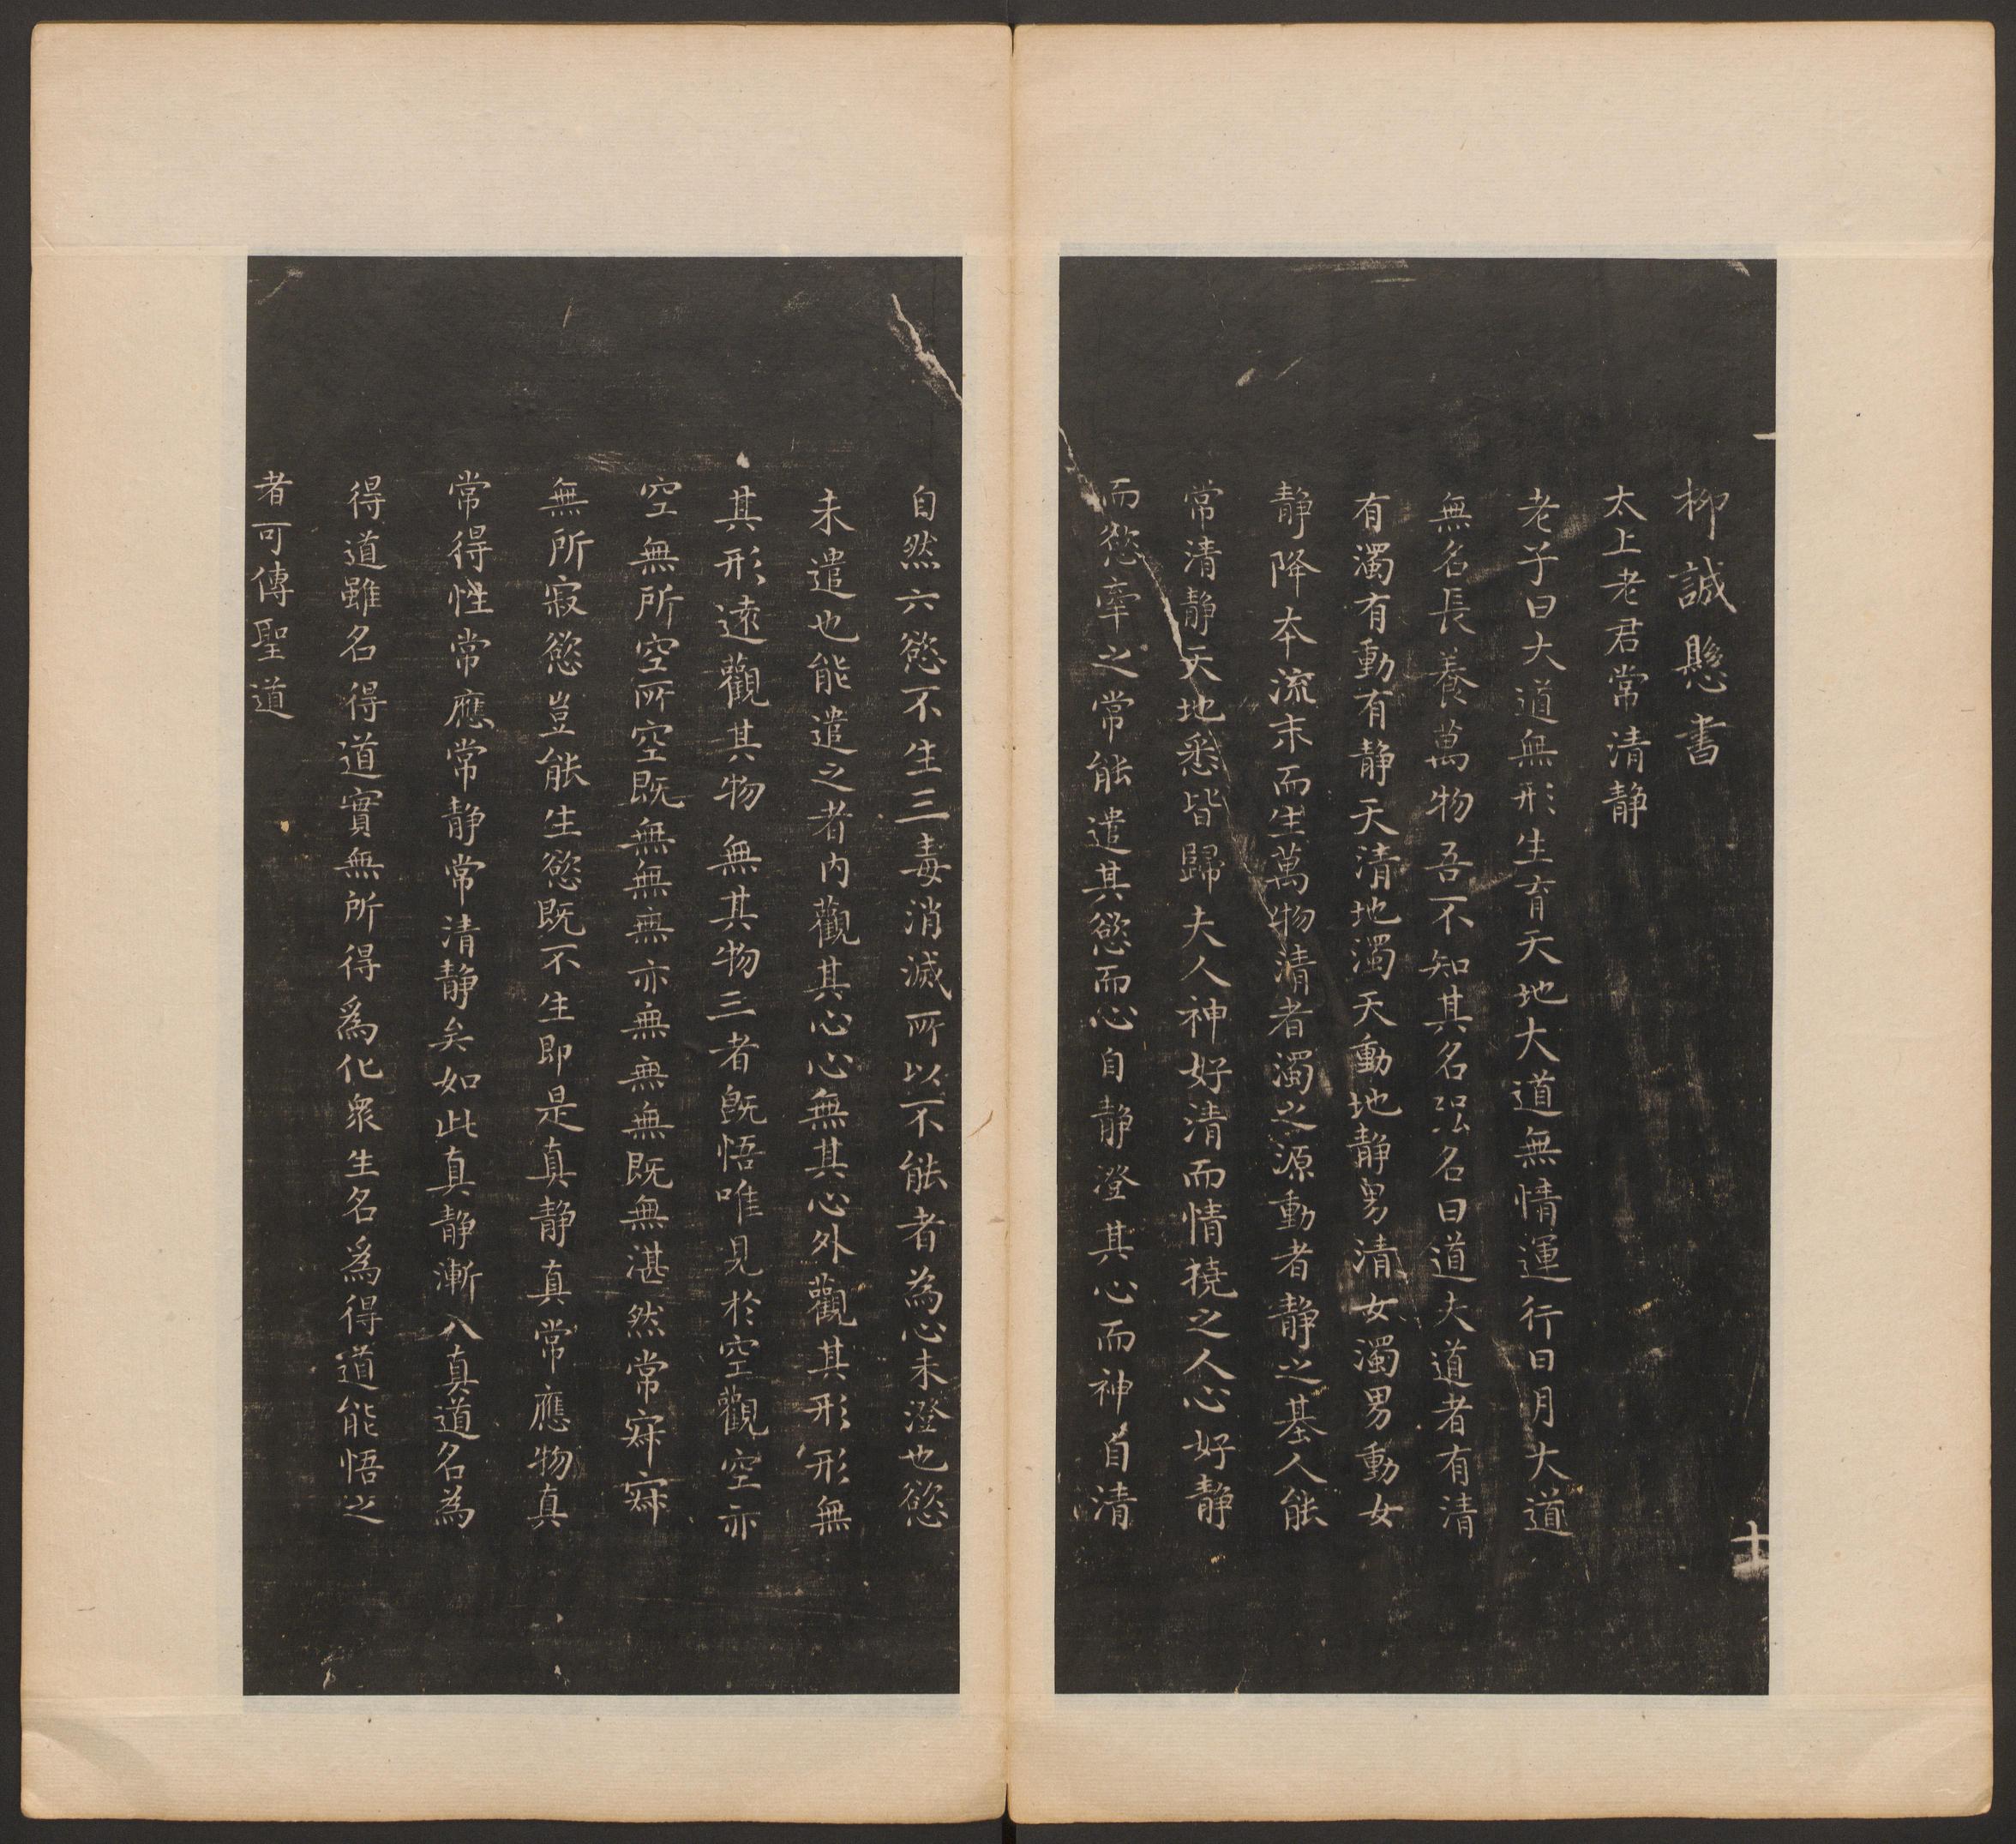 柳誠懸書
太上老君常清静
老子曰大道無形生育天地大道無情運行日月大道
無名長養萬物吾不知其名強名曰道夫道者有清
有濁有動有静天清地濁天動地静男清女濁男動女
静降本流末而生萬物清者濁之源動者静之基人能
常清静天地悉皆歸夫人神好清而情撓之人心好静
而慾牽之常能遣其慾而心自静澄其心而神自清
自然六慾不生三毒消滅所以不能者為心未澄也慾
未遣也能遣之者内觀其心心無其心外觀其形形無
其形遠觀其物無其物三者既悟唯見於空觀空亦
空無所空所空既無無無亦無無無既無湛然常寂寂
無所寂慾豈能生慾既不生即是真静真常應物真
常得性常應常静常清静矣如此真静漸入真道名為
得道雖名得道實無所得爲化衆生名爲得道能悟之
者可傳聖道